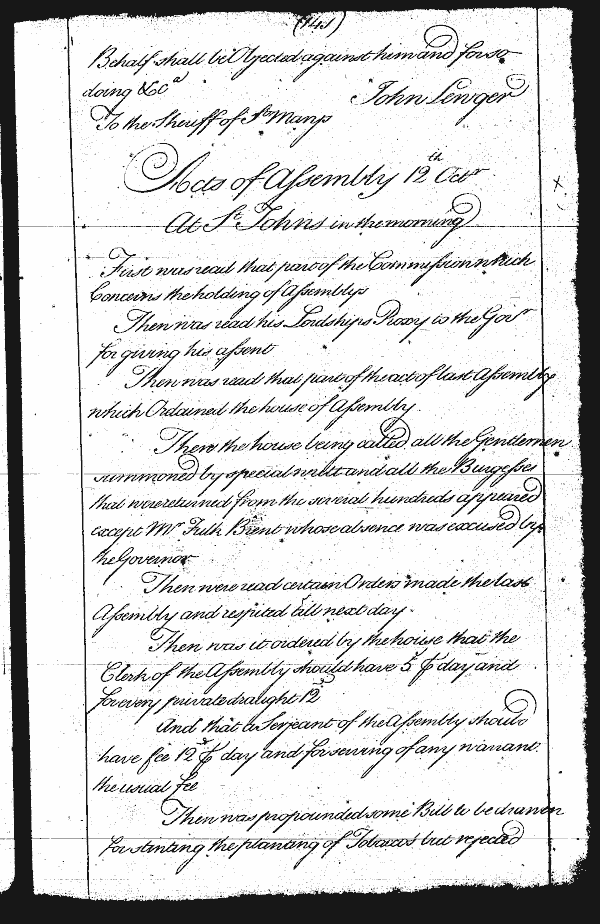 (141)
Behalf shall be Objected against him and for so
doing &Ca
John Lewger
To the Sheriff of St Marys
Acts of Assembly 12th Octr
At St Johns in the morning
First was read that part of the Commission which
Concerns the holding of Assemblys
Then was read his Lordships Proxy to the Govr
for giving his assent
Then was read that part of the act of last Assembly
which Ordained the house of Assembly
Then the house being called all the Gentlemen
summoned by special writt and all the Burgesses
that were returned from the several hundreds appeared
except Mr Fulk Brent whose absence was excused by
the Governor
Then were read certain Orders made the last
Assembly and respited till next day.
Then was it ordered by the house that the
Clerk of the Assembly should have 5s ⅌ day and
for every private draught 12d
And that a Serjeant of the Assembly should
have fee 12d ⅌ day and for serving of any warrant
the usual fee
Then was propounded some Bill to be drawn
for stinting the planting of Tobacco but rejected